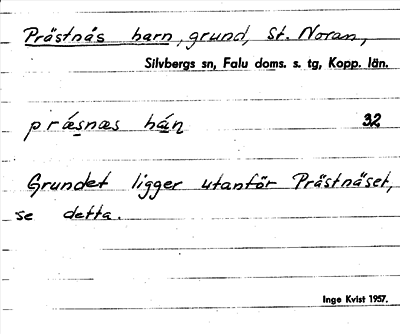 Prästnäs barn, grund, St. Noran,
Silvbergs sn, Falu doms. s. tg, Kopp. län.
præsnæs bán̥ 32
Grundet ligger utanför Prästnäset,
se detta.
Inge Kvist 1957.